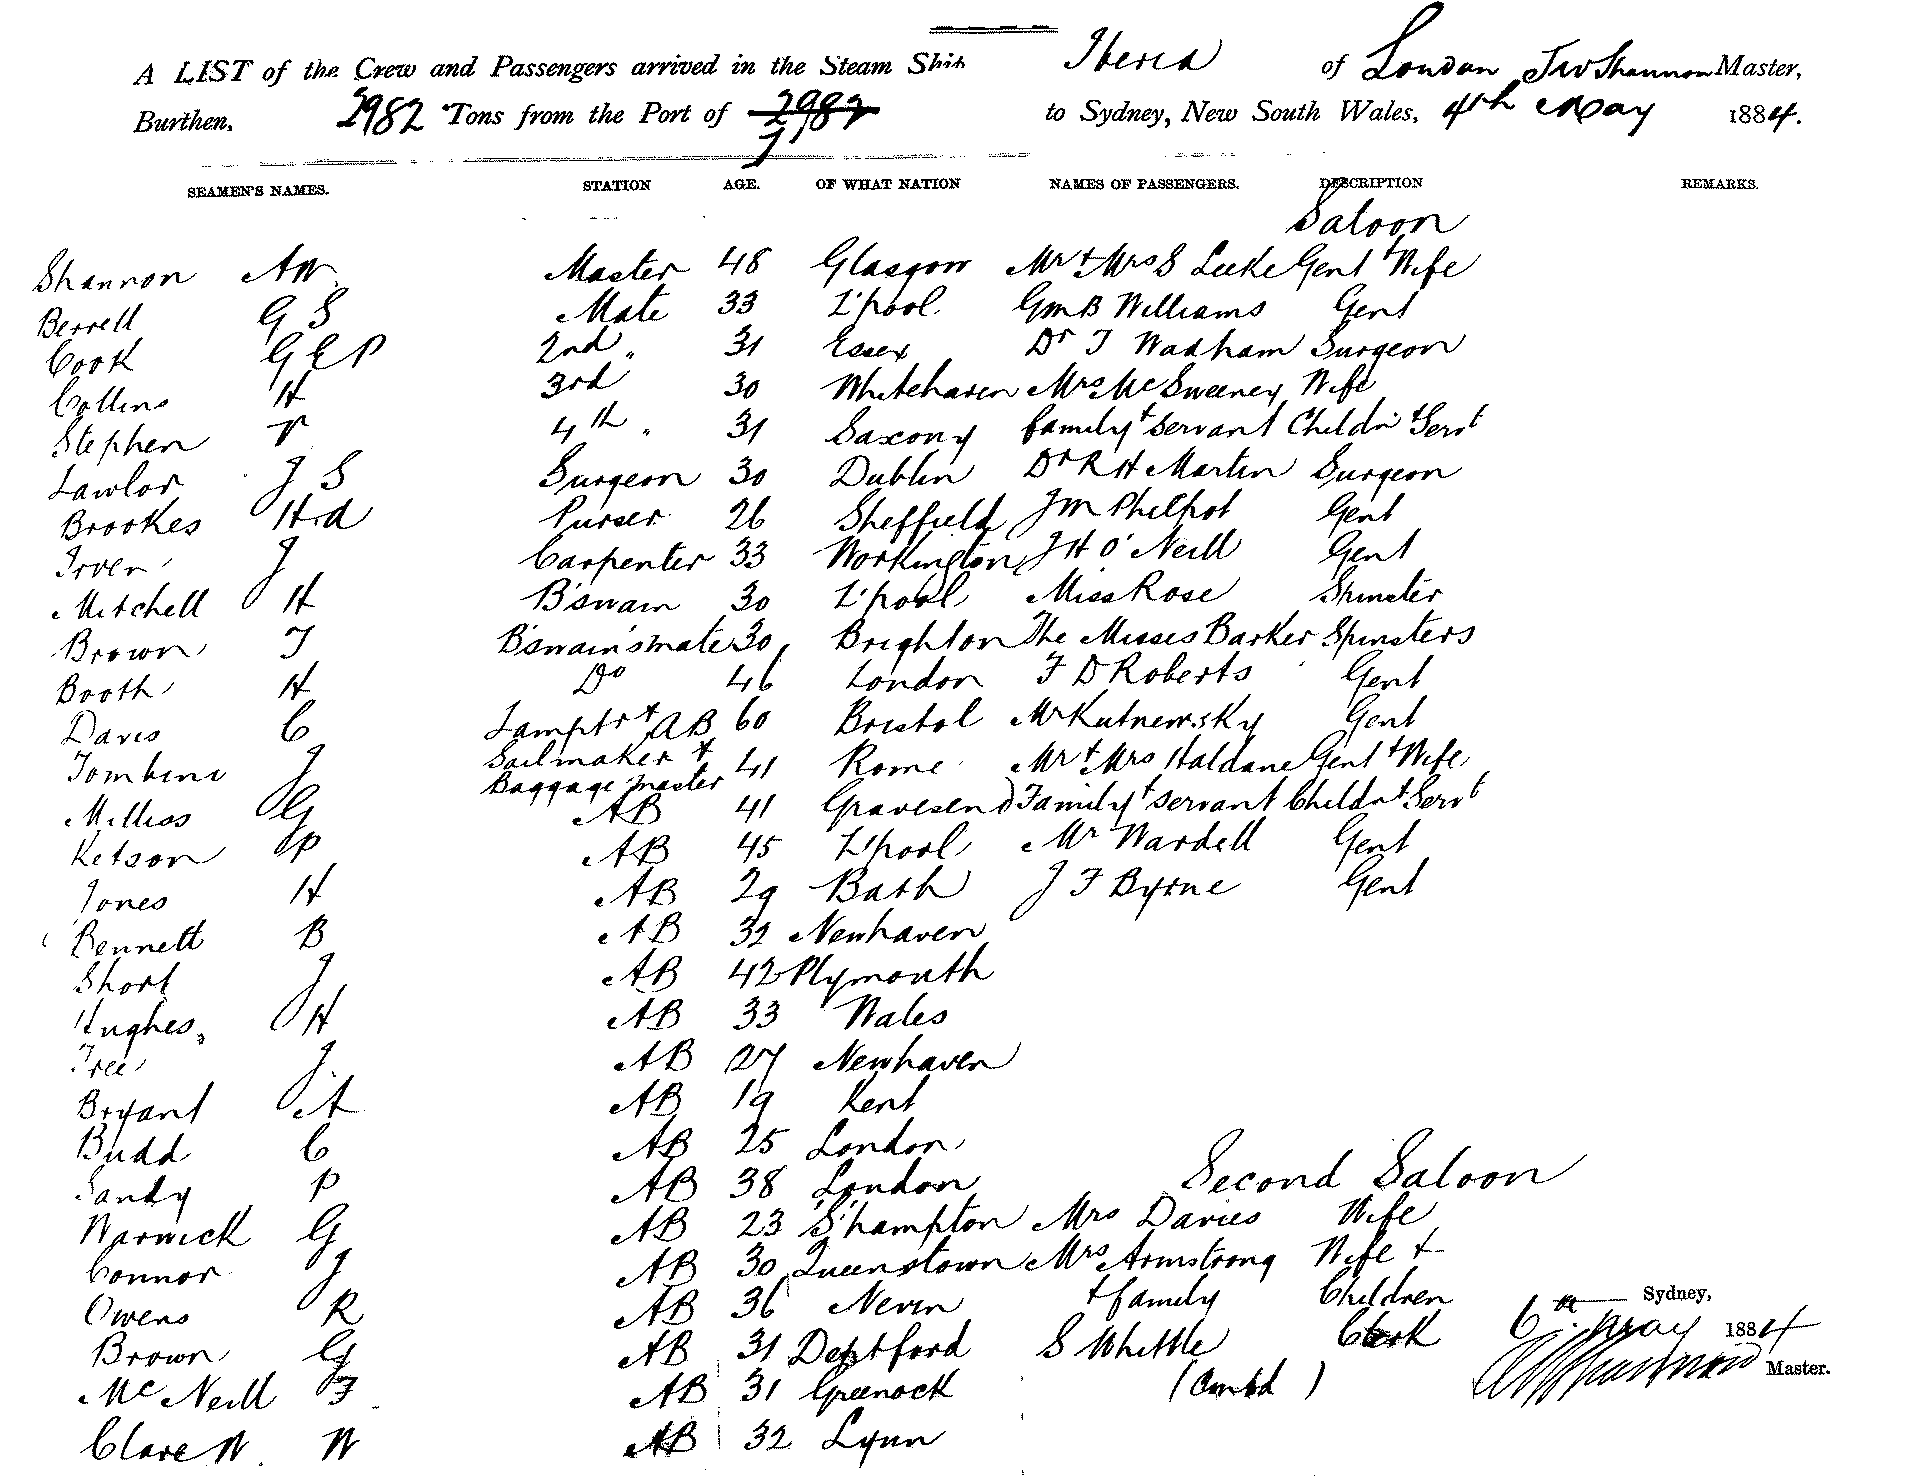 A LIST of the Crew and Passengers arrived in the Steam Ship Iberia of London Master,
Burthen, 2982 Tons from the Port of 2982 to Sydney, New South Wales, 4th May 1884.
SEAMEN'S NAMES. STATION AGE. OF WHAT NATION NAMES OF PASSENGERS. DESCRIPTION REMARKS.
Saloon
Shannon A W Master 48 Glasgow Mr & Mrs S Leeke Gent & Wife
Berrell G S Mate 33 L'pool Gm B Williams Gent
Cook G E P 2nd " 31 Essex Dr T Wadham Surgeon
Collins H 3rd 30 Whitehaven Mrs McSweeney Wife
Stephen V 4th " 31 Saxony family & servant Childn & Servt
Lawlor J S Surgeon 30 Dublin Dr R H Martin Surgeon
Brookes H d Purser 26 Sheffield J M Philpot Gent
Irven J Carpenter 33 Workington J H O'Neill Gent
Mitchell H B'swain 30 L'pool Miss Rose Spinster
Brown T B'swain's mate 30 Brighton The Misses Barker Spinsters
Booth H Do 46 London F D Roberts Gent
Davis C Lamptr & AB 60 Bristol Mr Kutnewsky Gent
Tombini J Sailmaker & Baggage master 41 Rome Mr & Mrs Haldane Gent & Wife
Milliss G AB 41 Gravesend Family & servant Childn & Servt
Ketson P AB 45 L'pool Mr Wardell Gent
Jones H AB 29 Bath J F Byrne Gent
Bennett B AB 32 Newhaven
Short J AB 42 Plymouth
Hughes H AB 33 Wales
Tree J AB 27 Newhaven
Bryant A AB 19 Kent
Budd C AB 25 London
Sandy P AB 38 London Second Saloon
Warwick G AB 23 S'hampton Mrs Davies Wife
Connor J AB 30 Queenstown Mrs Armstrong Wife &
Owens R AB 36 Nevin & family Children Sydney,
Brown G AB 31 Deptford S Whittle Clerk 6th May 1884
McNeill F AB 31 Greenock (Contd) Master.
Clare W W AB 32 Lynn